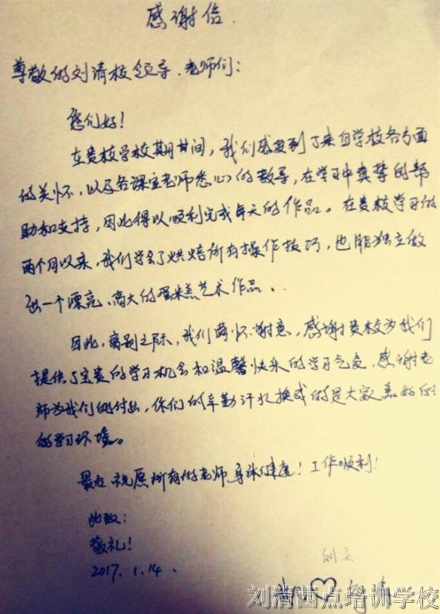 感谢信
尊敬的刘清校领导、老师们：
您们好！
在贵校学校期间，我们感受到了来自学校各方面
的关怀，以及各课室老师悉心的教导，在学习中真挚的帮
助和支持，因此得以顺利完成每天的作品。在贵校学习的
两个月以来，我们学会了烘焙所有操作技巧，也能独立做
出一个漂亮、高大的蛋糕艺术作品。
因此，离别之际，我们满怀谢意，感谢贵校为我们
提供了宝贵的学习机会和温馨快乐的学习气氛，感谢老
师为我们的付出，你们的辛勤汗水换成的是大家美好的
的学习环境。
最后祝愿所有的老师身体健康！工作顺利！
此致：
敬礼！
2017.1.14.
刘清西点培训学校